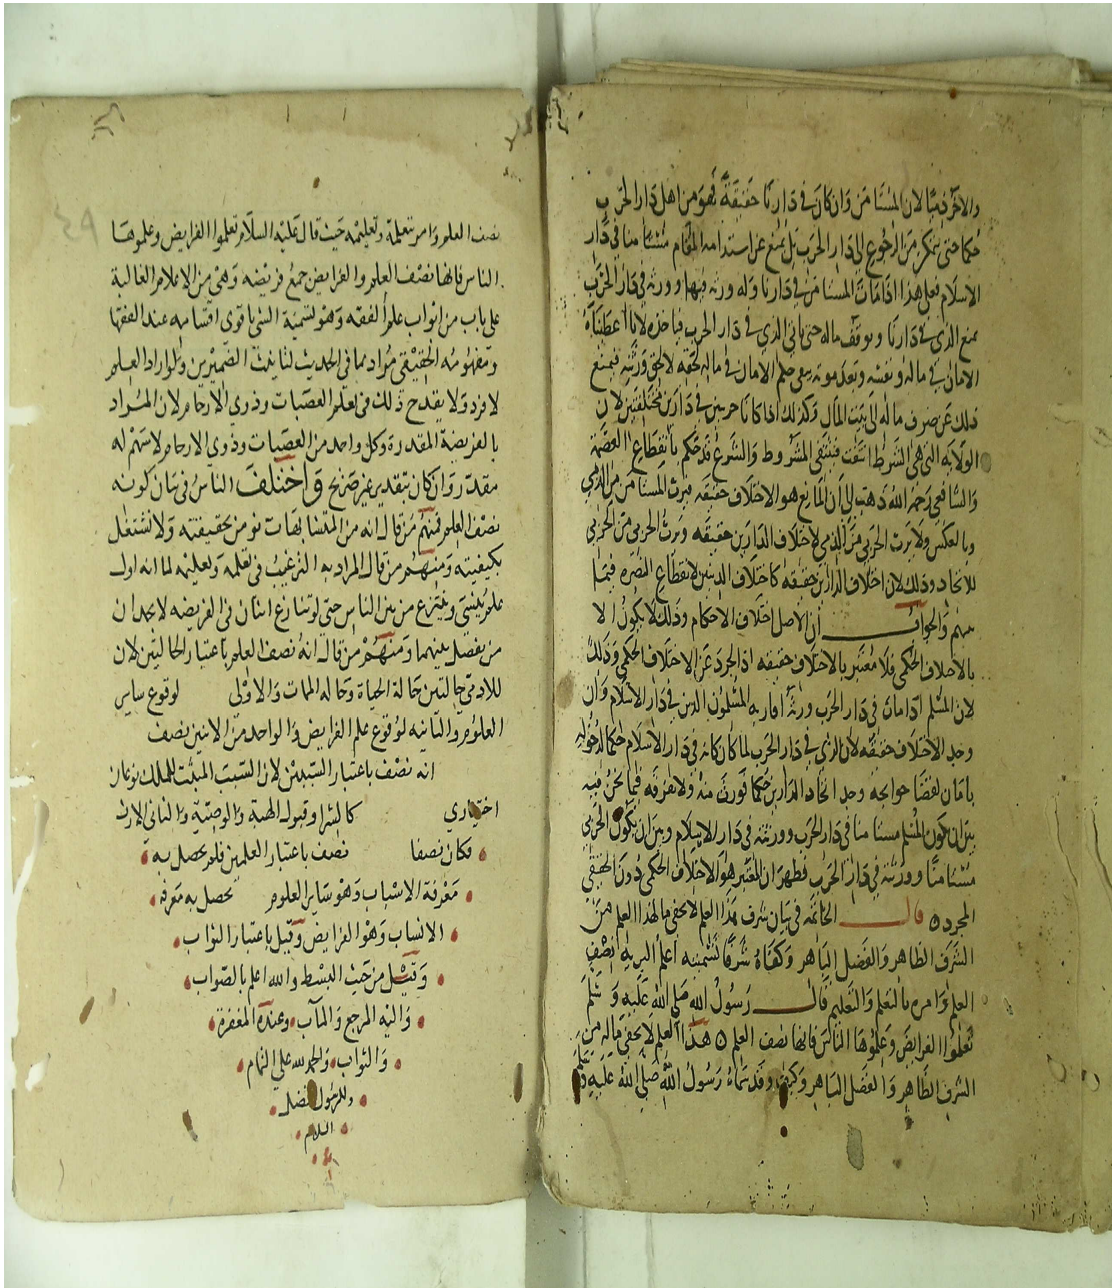 والآخر ذميا لان المستامن وان كان في دارنا حقيقة فهو من اهل دار الحرب
حكما حتى يتمكن من الرجوع الى دار الحرب بل يمنع عن استدامة المقام مستامنا في دار
الاسلام فعلى هذا اذا مات المستامن في دارنا وله ورثة فيها وورثة في دار الحرب
يمنع الذي في دارنا ويوقف ماله حتى ياتي الذي في دار الحرب فياخذه لانا اعطيناه
الامان في ماله ونفسه وبعد موته بقى حكم الامان في ماله لحقه لا لحق ورثته فيمنع
ذلك عن صرف ماله الى بيت المال وكذلك اذا كانا حربيين في دارين مختلفتين لان
الولاية التي هي الشرط انتفت فينتفي المشروط والشرع قد حكم بانقطاع العصمة
والشافعي رحمه الله ذهب الى ان المانع هو الاختلاف حقيقة فيرث المستامن من الذمي
وبالعكس ولا يرث الحربي من الذمي لاختلاف الدارين حقيقة ويرث الحربي من الحربي
للاتحاد وذلك لان اختلاف الدارين حقيقة كاختلاف الدينين لانقطاع النصرة فيما
بينهم والجواب ان الاصل اختلاف الاحكام وذلك لا يكون الا
بالاختلاف الحكمي فلا معتبر بالاختلاف حقيقة اذا تجرد عن الاختلاف الحكمي وذلك
لان المسلم اذا مات في دار الحرب ورثه اقاربه المسلمون الذين في دار الاسلام وان
وجد الاختلاف حقيقة لان الذي في دار الحرب لما كان كانه في دار الاسلام حكما لدخوله
بامان لقضا حوايجه وجد اتحاد الدارين حكما فورث منه ولا تفرقة فيما نحن فيه
بين ان يكون المسلم مستامنا في دار الحرب وورثته في دار الاسلام وبين ان يكون الحربي
مستامنا وورثته في دار الحرب فظهر ان المعتبر هو الاختلاف الحكمي دون الحقيقي
المجرد ه قال الخاتمة في بيان شرف هذا العلم لا يخفى ما لهذا العلم من
الشرف الظاهر والفضل الباهر وكفاه شرفا تسميته اعلم البرية نصف
العلم وامره بالتعلم والتعليم قال رسول الله صلى الله عليه وسلم
تعلموا الفرايض وعلموها الناس فانها نصف العلم ه هذا العلم لا يخفى ماله من
الشرف الظاهر والفضل الباهر وكيف وقد سماه رسول الله صلى الله عليه وسلم
نصف العلم وامر بتعلمه وتعليمه حيث قال عليه السلام تعلموا الفرايض وعلموها
الناس فانها نصف العلم والفرايض جمع فريضة وهي من الاعلام الغالبة
على باب من ابواب علم الفقه وهو لتسمية الشي باقوى اقسامه عند الفقها
ومفهومه الحقيقي مراد بما في الحديث لتانيث الضميرين ولو اراد العلم
لافرد ولا يقدح ذلك في تعلم العصبات وذوي الارحام لان المراد
بالفريضة المقدرة وكل واحد من العصبات وذوي الارحام لا سهم له
مقدر وان كان بتقدير غير صريح واختلف الناس في بيان كونه
نصف العلم فمنهم من قال انه من المتشابهات نومن بحقيقته ولا نشتغل
بكيفيته ومنهم من قال المراد به الترغيب في تعلمه وتعليمه لما انه اول
علم ينسى وينتزع من بين الناس حتى لو تنازع اثنان في الفريضة لا يجدان
من يفصل بينهما ومنهم من قال انه نصف العلم باعتبار الحالتين لان
للادمي حالتين حالة الحياة وحالة الممات والاولى لوقوع ساير
العلوم والثانية لوقوع علم الفرايض والواحد من الاثنين نصف
انه نصف باعتبار السببين لان السبب المثبت للملك نوعان
اختياري كالشرا وقبول الهبة والوصية والثاني الارث
فكان نصفا نصف باعتبار العلمين فلم يحصل به
معرفة الاسباب وهو ساير العلوم يحصل به معرفة
الانساب وهو الفرايض وقيل باعتبار الثواب
وقيل من حيث البسط والله اعلم بالصواب
واليه المرجع والمآب وعنده المغفرة
والثواب والحمد لله على التمام
وللرسول افضل
السلام